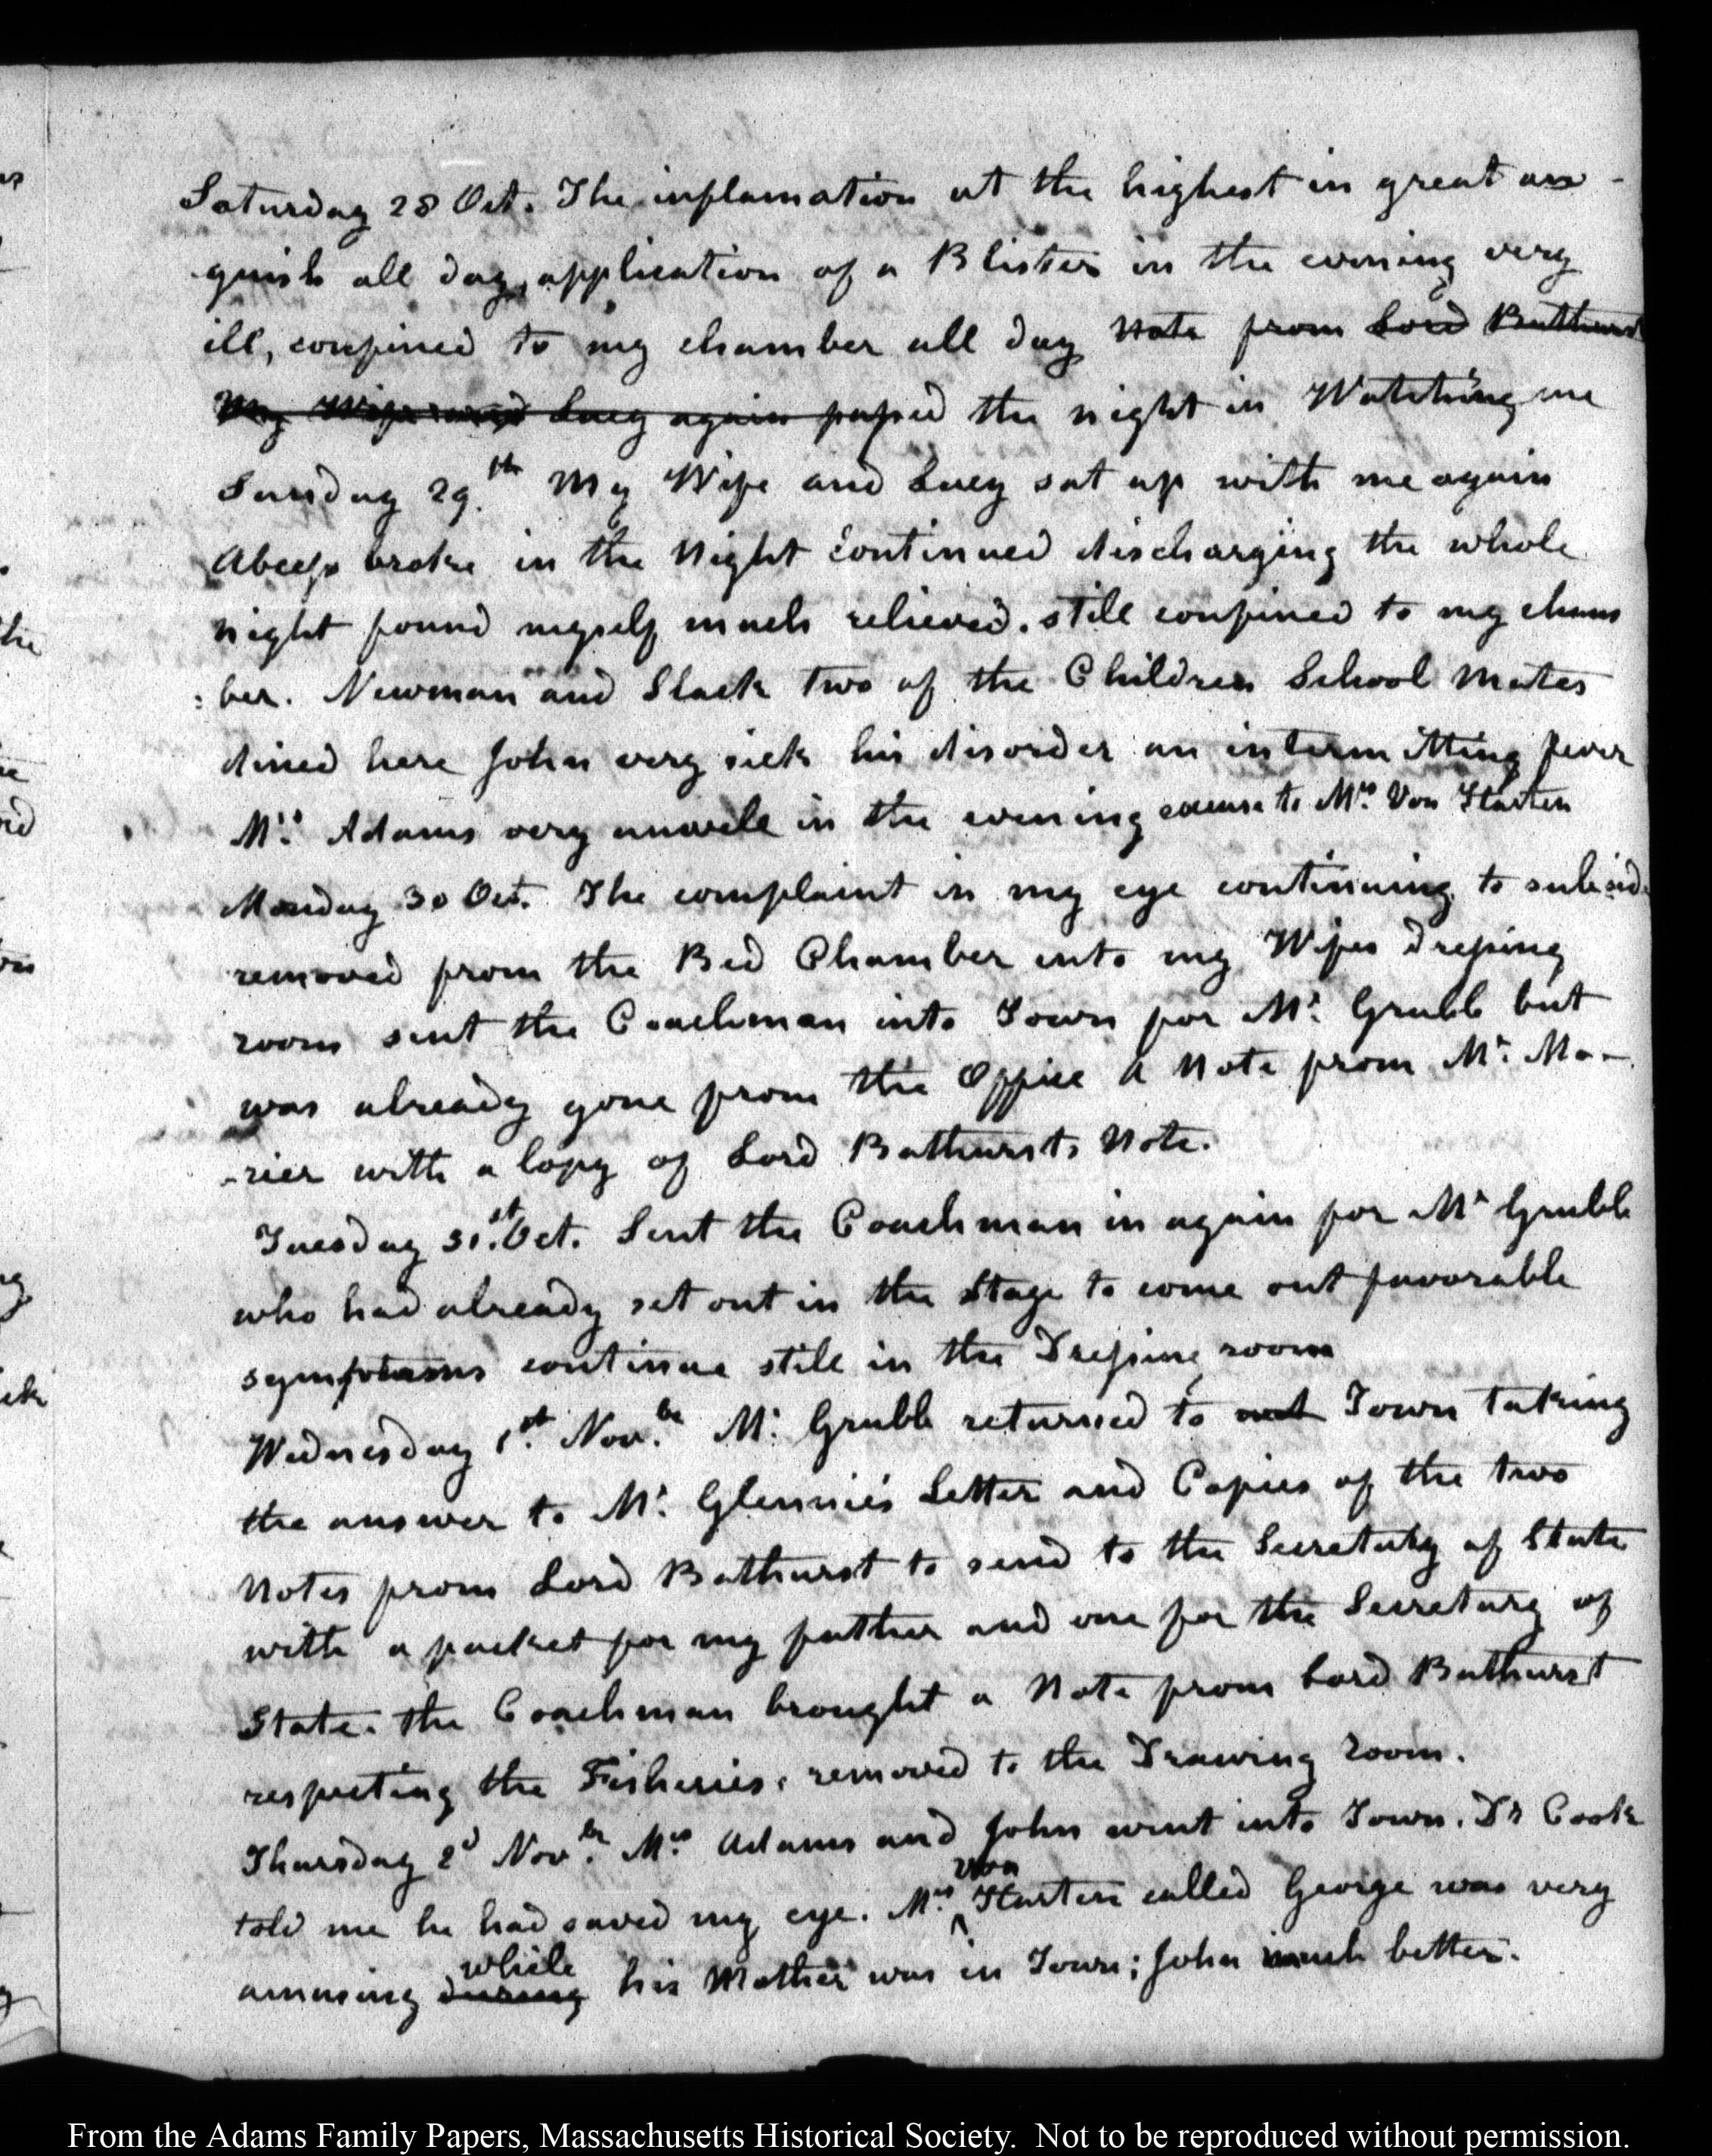 Saturday 28 Oct. The inflamation at the highest in great an-
guish all day, application of a Blister in the evening very
ill, confined to my chamber all day Note from Lord Bathurst
My Wife and Lucy again passed the night in Watching me
Sunday 29.th My Wife and Lucy sat up with me again
Abcess broke in the Night continued discharging the whole
night found myself much relieved. still confined to my cham
:ber. Newman and Slack two of the Children School Mates
dined here John very sick his disorder an intermitting fever
Mrs. Adams very unwell in the evening excuse to Mrs. Von Harten
Monday 30 Oct. The complaint in my eye continuing to subside
removed from the Bed Chamber into my Wifes Dressing
room sent the Coachman into Town for Mr. Grubb but
was already gone from the Office A Note from Mr. Mo-
-rier with a Copy of Lord Bathursts Note.
Tuesday 31.st Oct. Sent the Coachman in again for Mr Grubb
who had already set out in the Stage to come out favorable
symptoms continue still in the Dressing room
Wednesday 1.st Nov.br Mr. Grubb returned to out Town taking
the answer to Mr. Glennie's Letter and Copies of the two
Notes from Lord Bathurst to send to the Secretary of State
with a packet for my father and one for the Secretary of
State. the Coachman brought a Note from Lord Bathurst
respecting the Fisheries. removed to the Drawing room.
Thursday 2d Nov.br Mrs. Adams and John went into Town. Dr Cook
told me he had saved my eye. Mrs. Von Harten called George was very
amusing during while his Mother was in Town; John much better.
From the Adams Family Papers, Massachusetts Historical Society. Not to be reproduced without permission.